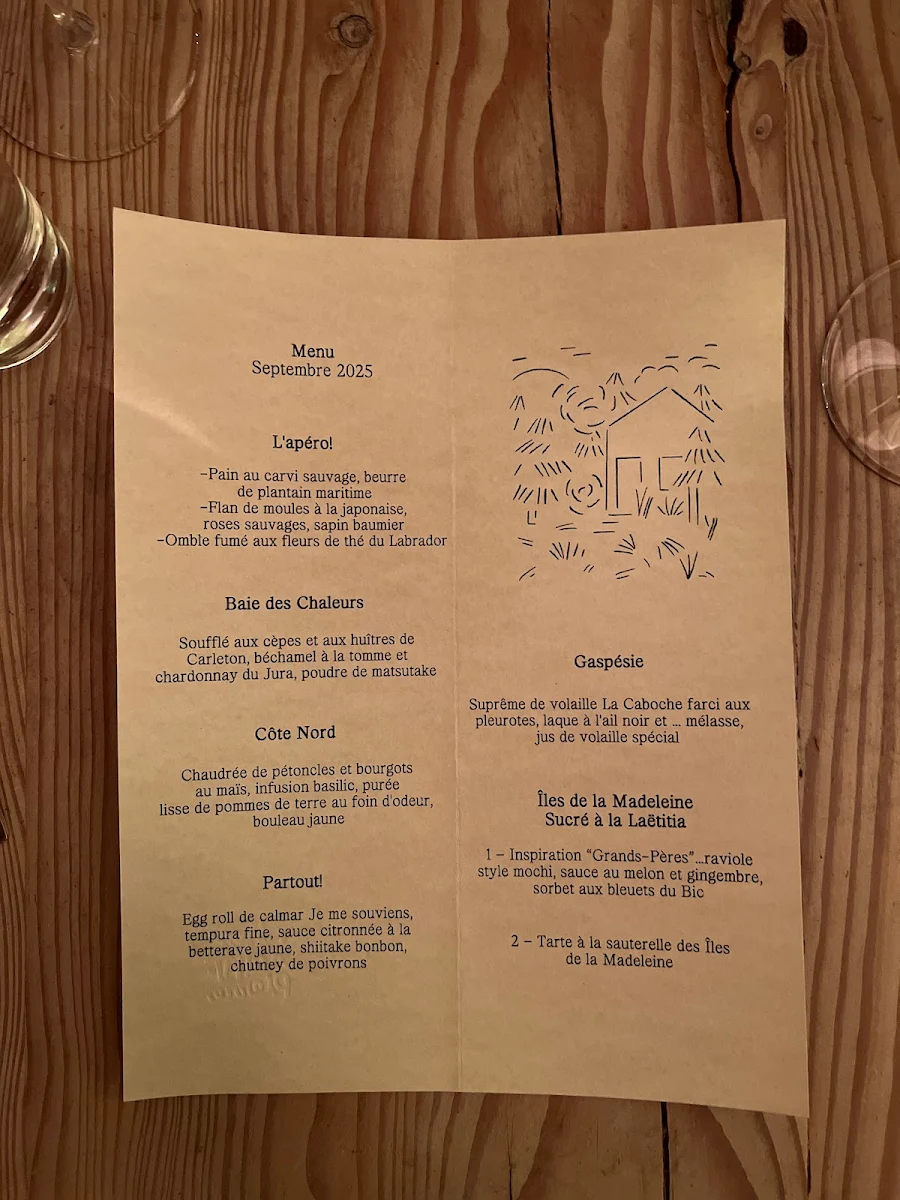 Menu
Septembre 2025
L'apéro!
-Pain au carvi sauvage, beurre
de plantain maritime
-Flan de moules à la japonaise,
roses sauvages, sapin baumier
-Omble fumé aux fleurs de thé du Labrador
Baie des Chaleurs
Soufflé aux cèpes et aux huîtres de
Carleton, béchamel à la tomme et
chardonnay du Jura, poudre de matsutake
Côte Nord
Chaudrée de pétoncles et bourgots
au maïs, infusion basilic, purée
lisse de pommes de terre au foin d'odeur,
bouleau jaune
Partout!
Egg roll de calmar Je me souviens,
tempura fine, sauce citronnée à la
betterave jaune, shiitake bonbon,
chutney de poivrons
Gaspésie
Suprême de volaille La Caboche farci aux
pleurotes, laque à l'ail noir et ... mélasse,
jus de volaille spécial
Îles de la Madeleine
Sucré à la Laëtitia
1 – Inspiration “Grands-Pères”...raviole
style mochi, sauce au melon et gingembre,
sorbet aux bleuets du Bic
2 – Tarte à la sauterelle des Îles
de la Madeleine